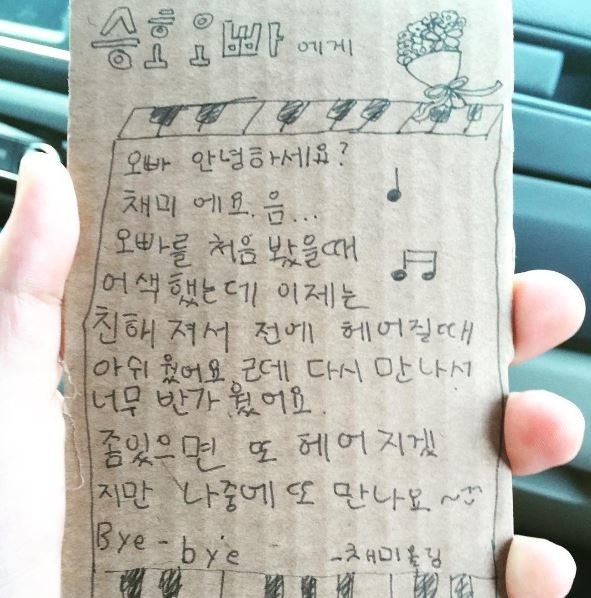 승호오빠에게
오빠 안녕하세요?
채미에요. 음...
오빠를 처음 봤을때
어색했는데 이제는
친해져서 전에 헤어질때
아쉬웠어요 근데 다시 만나서
너무 반가웠어요.
좀있으면 또 헤어지겠
지만 나중에 또 만나요~
Bye-bye
-채미올림